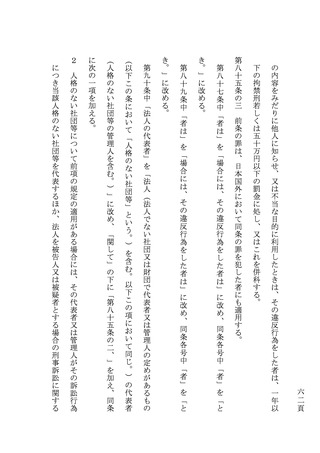 六二頁
の内容をみだりに他人に知らせ、又は不当な目的に利用したときは、その違反行為をした者は、一年以
下の拘禁刑若しくは五十万円以下の罰金に処し、又はこれを併科する。
第八十五条の三　前条の罪は、日本国外において同条の罪を犯した者にも適用する。
第八十七条中「者は」を「場合には、その違反行為をした者は」に改め、同条各号中「者」を「と
き。」に改める。
第八十九条中「者は」を「場合には、その違反行為をした者は」に改め、同条各号中「者」を「と
き。」に改める。
第九十条中「法人の代表者」を「法人（法人でない社団又は財団で代表者又は管理人の定めがあるもの
（以下この条において「人格のない社団等」という。）を含む。以下この項において同じ。）の代表者
（人格のない社団等の管理人を含む。）」に改め、「関して」の下に「第八十五条の二、」を加え、同条
に次の一項を加える。
２　人格のない社団等について前項の規定の適用がある場合には、その代表者又は管理人がその訴訟行為
につき当該人格のない社団等を代表するほか、法人を被告人又は被疑者とする場合の刑事訴訟に関する